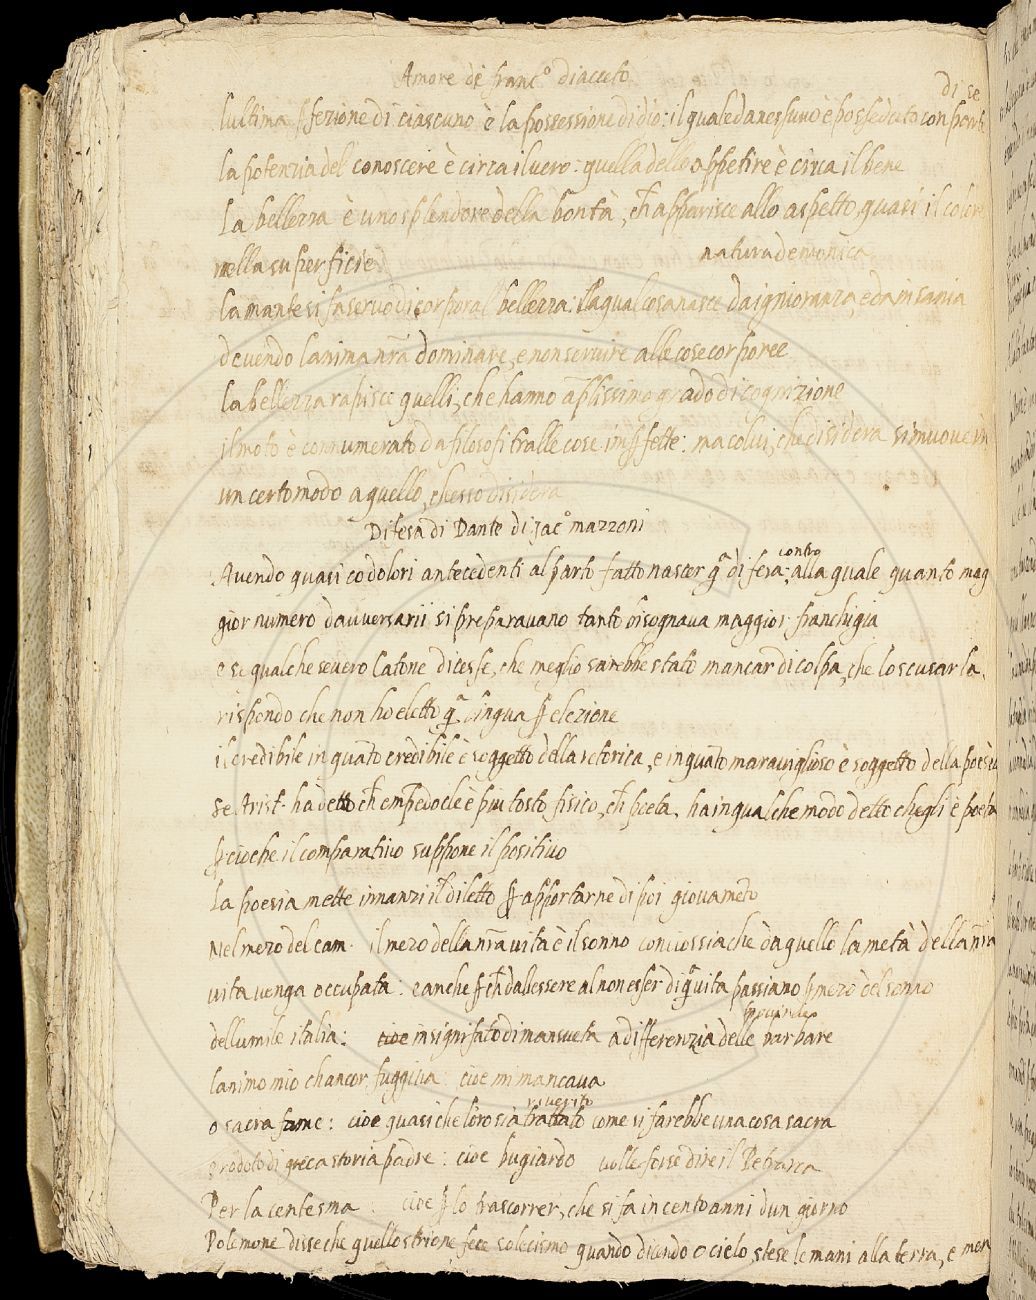 Amore di franc.º diacceto
di se
lultima p̱fezione di ciascuno è la possessione di dio: il quale da nessuno è posseduto con
la potenzia del conoscere è circa il vero: quella dello appetire è circa il bene
La bellezza è uno splendore della bontà, ch̄ apparisce allo aspetto, quasi il colore
nella superficie
natura demonica
lamante si fa servo di corporal bellezza. Ilaqual cosa nasce da ignioranza, e da insania
devendo lanima nr̄a dominare, e non servire alle cose corporee
la bellezza rapisce quelli, che hanno āplissimo grado di cognizione
il moto è connumerato da filosofi tralle cose imp̱fette: ma colui, che disidera si muove in
un certo modo a quello, chesso disidera
Difesa di Dante di Jac.º mazzoni
contro
Avendo quasi co dolori antecedenti al parto fatto nascer q̄a difesa: alla quale quanto mag
gior numero davversarii si preparavano tanto bisognava maggior franchigia
e se qualche severo Catone dicesse, che meglio sarebbe stato mancar di colpa, che lo scusarla.
rispondo che non ho eletto q̄a lingua p̱ elezione
il credibile in quāto credibile è soggetto della retorica, e inquāto maraviglioso è soggetto della poesia
Se Arist. ha detto ch̄ empedocle è piu tosto fisico, ch̄ poeta, ha in qualche modo detto chegli è poeta
p̱cioche il comparativo suppone il positivo
La poesia mette innanzi il diletto p̱ apportarne di poi giovamēto
Nel mezo del cam. il mezo della nr̄a vita è il sonno conciossiache da quello la metà della nr̄a
vita venga occupata: e anche p̱ch̄ dalessere al non esser di q̄a vita passiano p̱ mezo del sonno
dellumile italia: cioe in significato di mansueta a differenzia delle barbare
lanimo mio chancor fuggiva: cioe mi mancava
riverito
o sacra fame: cioe quasi che loro sia trattato come si farebbe una cosa sacra
erodoto di greca storia padre: cioe bugiardo volle forse dire il Petrarca
Per la centesma: cioe p̱ lo trascorrer, che si fa in cento anni dun giorno
Polemone disse che quello strione fece solecismo quando dicendo o cielo, stese le mani alla terra, e